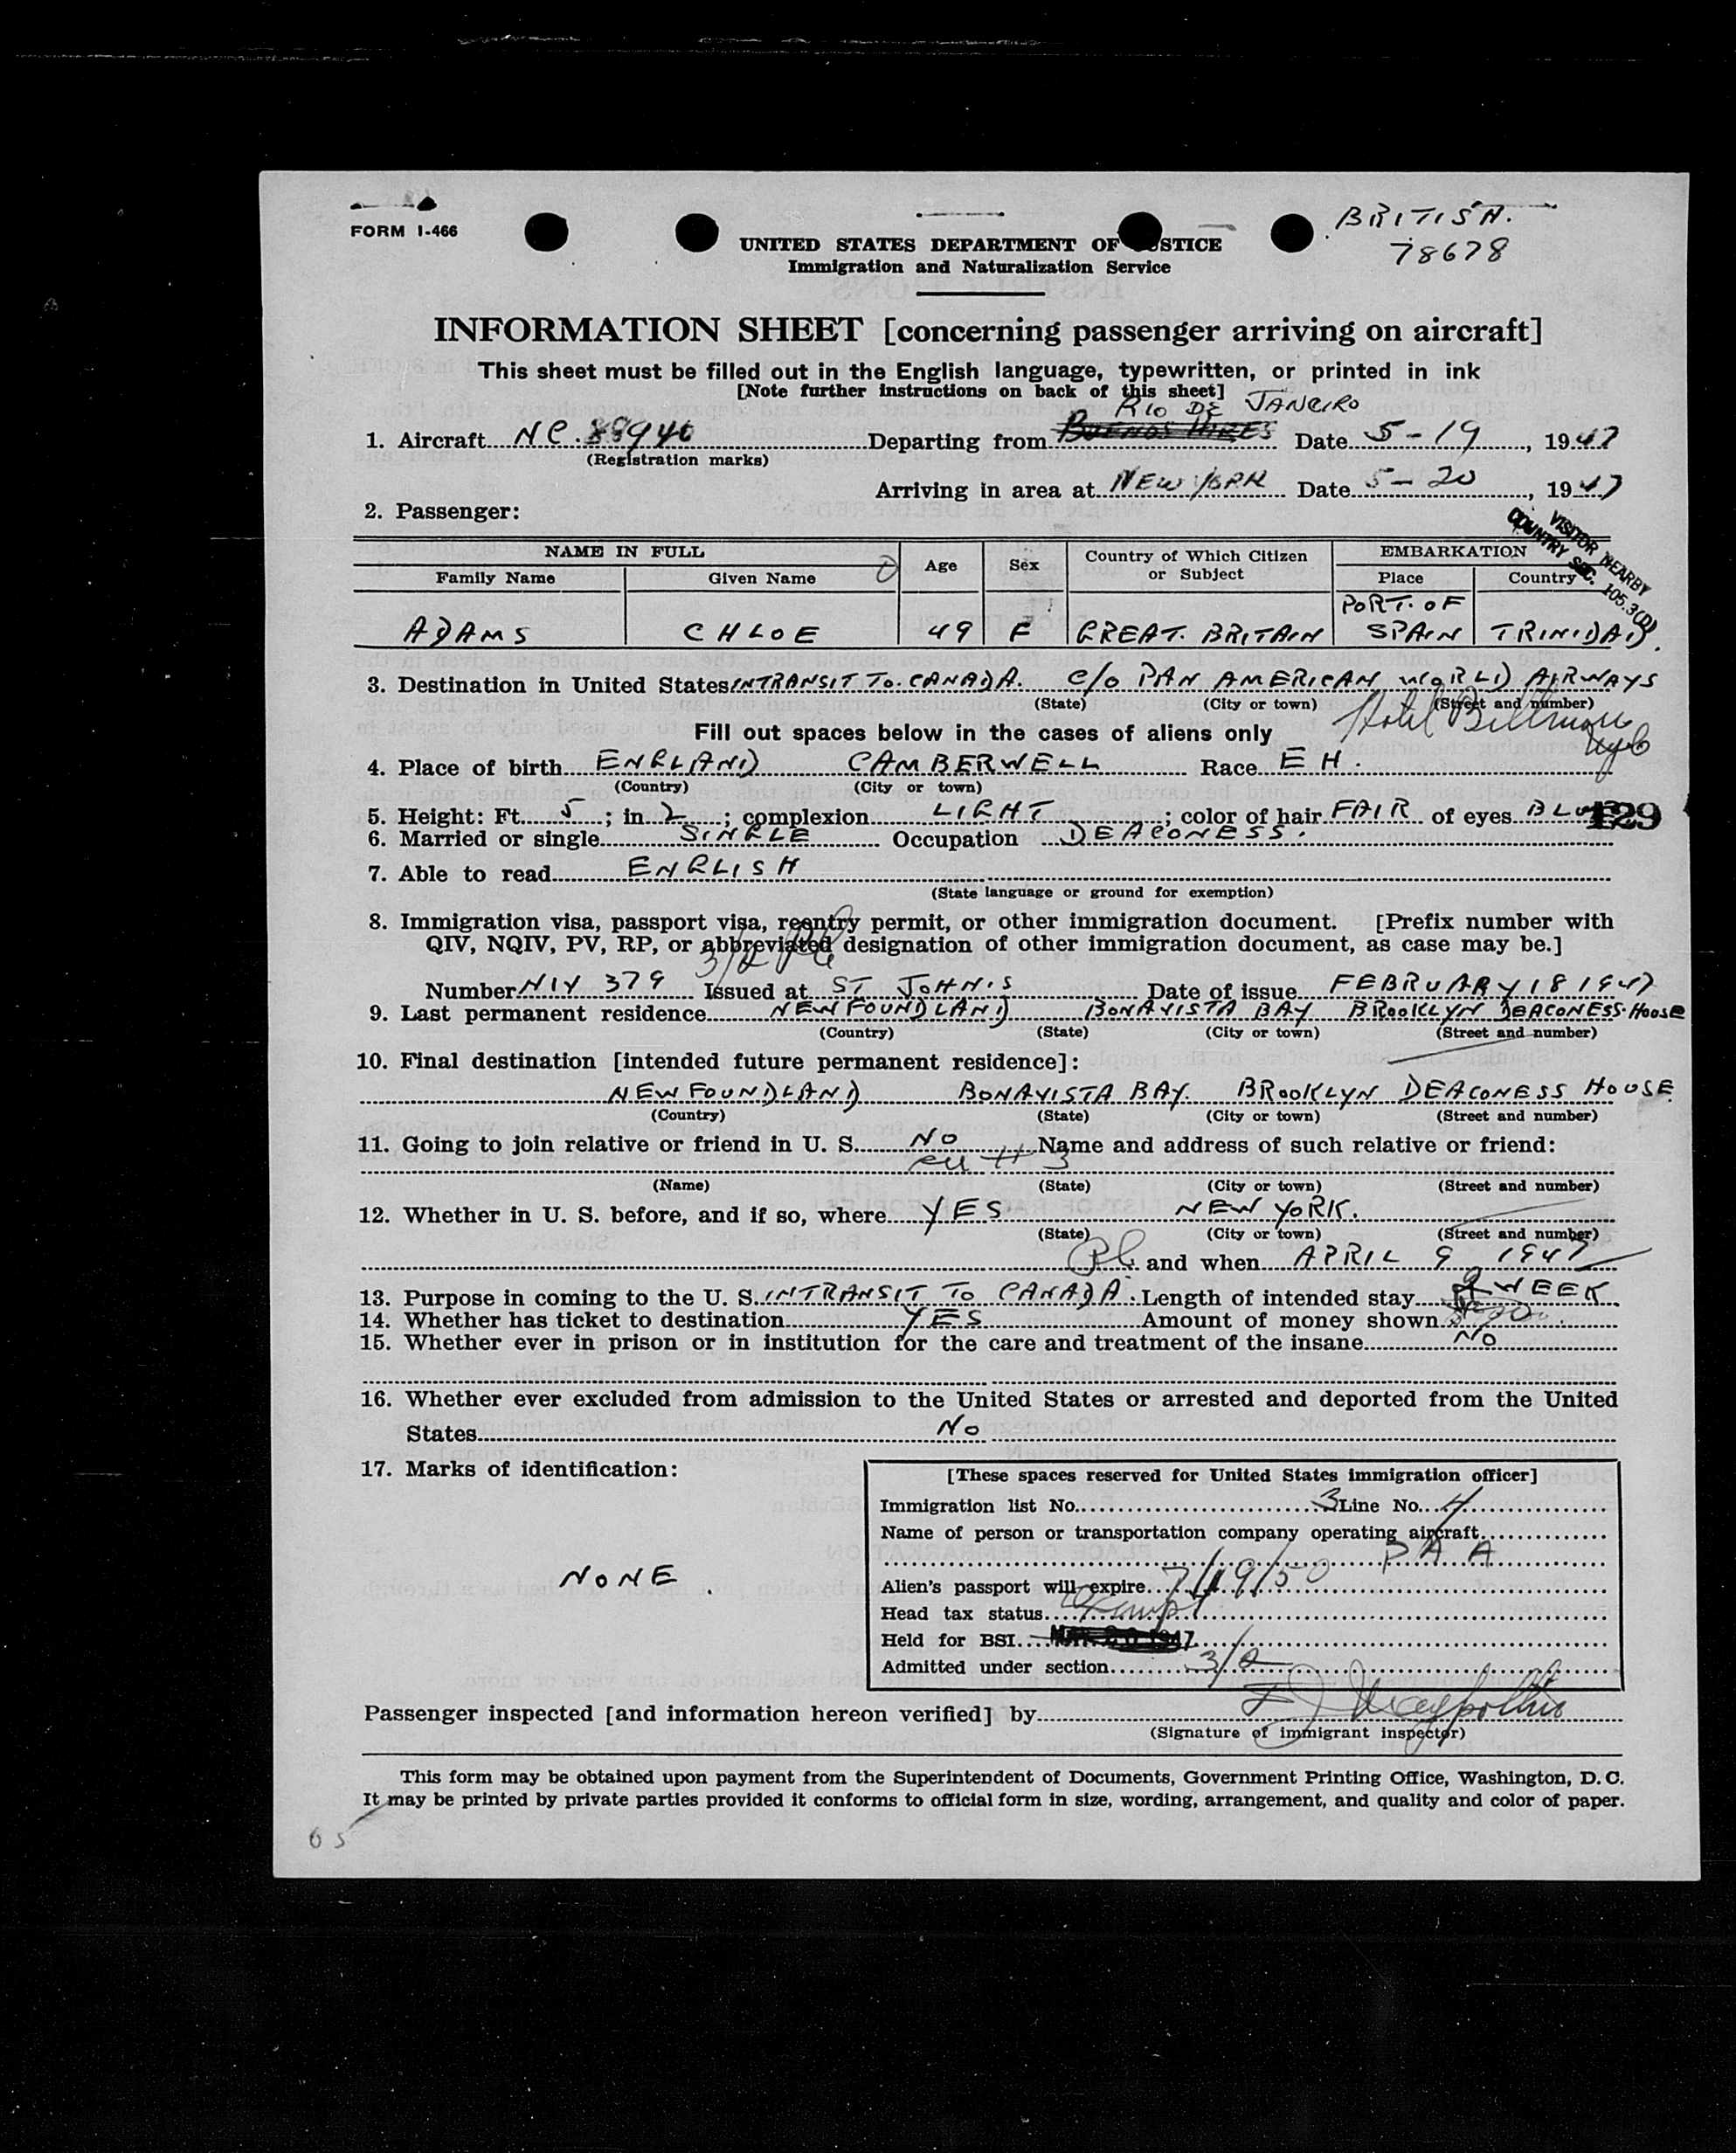 BRITISH.
FORM I-466
78678
UNITED STATES DEPARTMENT OF JUSTICE
Immigration and Naturalization Service
INFORMATION SHEET [concerning passenger arriving on aircraft]
This sheet must be filled out in the English language, typewritten, or printed in ink
[Note further instructions on back of this sheet]
RIO DE JANEIRO
1. Aircraft NC. 88940 Departing from BUENOS AIRES Date 5-19, 1947
(Registration marks)
Arriving in area at NEW YORK Date 5-20, 1947
2. Passenger:
VISITOR NEARBY
COUNTRY SEC. 105.3(D)
NAME IN FULL Age Sex Country of Which Citizen or Subject EMBARKATION
Family Name Given Name Place Country
PORT. OF
ADAMS CHLOE 49 F GREAT. BRITAIN SPAIN TRINIDAD.
3. Destination in United States INTRANSIT TO. CANADA. C/O PAN AMERICAN WORLD AIRWAYS
(State) (City or town) (Street and number)
Hotel Biltmore
Fill out spaces below in the cases of aliens only
4. Place of birth ENGLAND CAMBERWELL Race EH.
(Country) (City or town)
5. Height: Ft. 5; in 2; complexion LIGHT; color of hair FAIR of eyes BLUE
129
6. Married or single SINGLE Occupation DEACONESS.
7. Able to read ENGLISH
(State language or ground for exemption)
8. Immigration visa, passport visa, reentry permit, or other immigration document. [Prefix number with
QIV, NQIV, PV, RP, or abbreviated designation of other immigration document, as case may be.]
3/2
Number NIV 379 Issued at ST JOHN'S Date of issue FEBRUARY 18 1947
9. Last permanent residence NEWFOUNDLAND BONAVISTA BAY BROOKLYN DEACONESS. HOUSE
(Country) (State) (City or town) (Street and number)
10. Final destination [intended future permanent residence]:
NEWFOUNDLAND BONAVISTA BAY. BROOKLYN DEACONESS HOUSE
(Country) (State) (City or town) (Street and number)
11. Going to join relative or friend in U. S. NO Name and address of such relative or friend:
# 3
(Name) (State) (City or town) (Street and number)
12. Whether in U. S. before, and if so, where YES NEW YORK.
(State) (City or town) (Street and number)
and when APRIL 9 1947
13. Purpose in coming to the U. S. INTRANSIT TO CANADA. Length of intended stay WEEK
14. Whether has ticket to destination YES Amount of money shown
15. Whether ever in prison or in institution for the care and treatment of the insane NO
16. Whether ever excluded from admission to the United States or arrested and deported from the United
States NO
17. Marks of identification:
NONE.
[These spaces reserved for United States immigration officer]
Immigration list No. 3 Line No. 4
Name of person or transportation company operating aircraft
PAA
Alien's passport will expire 7/19/50
Head tax status Exempt
Held for BSI MAY 20 1947
Admitted under section 3/2
Passenger inspected [and information hereon verified] by
(Signature of immigrant inspector)
This form may be obtained upon payment from the Superintendent of Documents, Government Printing Office, Washington, D. C.
It may be printed by private parties provided it conforms to official form in size, wording, arrangement, and quality and color of paper.
65